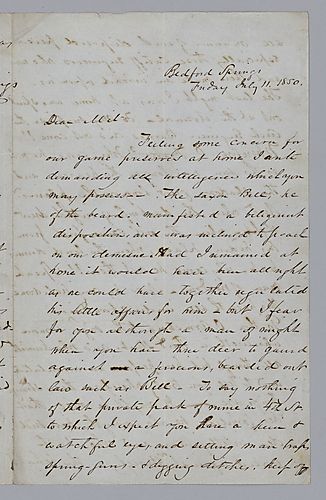 Bedford Springs
Friday July 11. 1850.
Dear Met
Feeling some concern for
our game preserves at home I write
demanding all intelligence which you
may possess. The Saxon Bell, he
of the beard, manifested a beligerent
disposition and was inclined to poach
on our demesne. Had I remained at
home it would have been all right
as we could have together regulated
his little affairs for him – but I fear
for you although a man of might
when you have three deer to guard
against a ferocious, bearded out
law such as Bell. To say nothing
of that private park of mine in 4th St
to which I expect you have a keen &
watchful eye, and setting man traps
spring-guns – & digging ditches, keep off